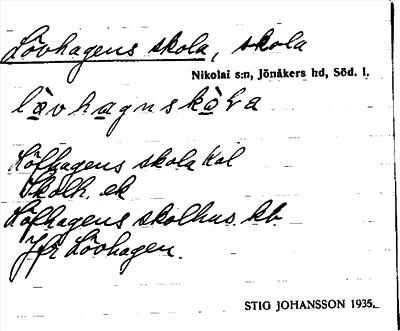 Lövhagens skola, skola
Nikolai s:n, Jönåkers hd, Söd. l.
lö̀vhagnskò̀la
Löfhagens skola Kal
Skolk. ek
Löfhagens skolhus kb.
Jfr Lövhagen.
STIG JOHANSSON 1935.